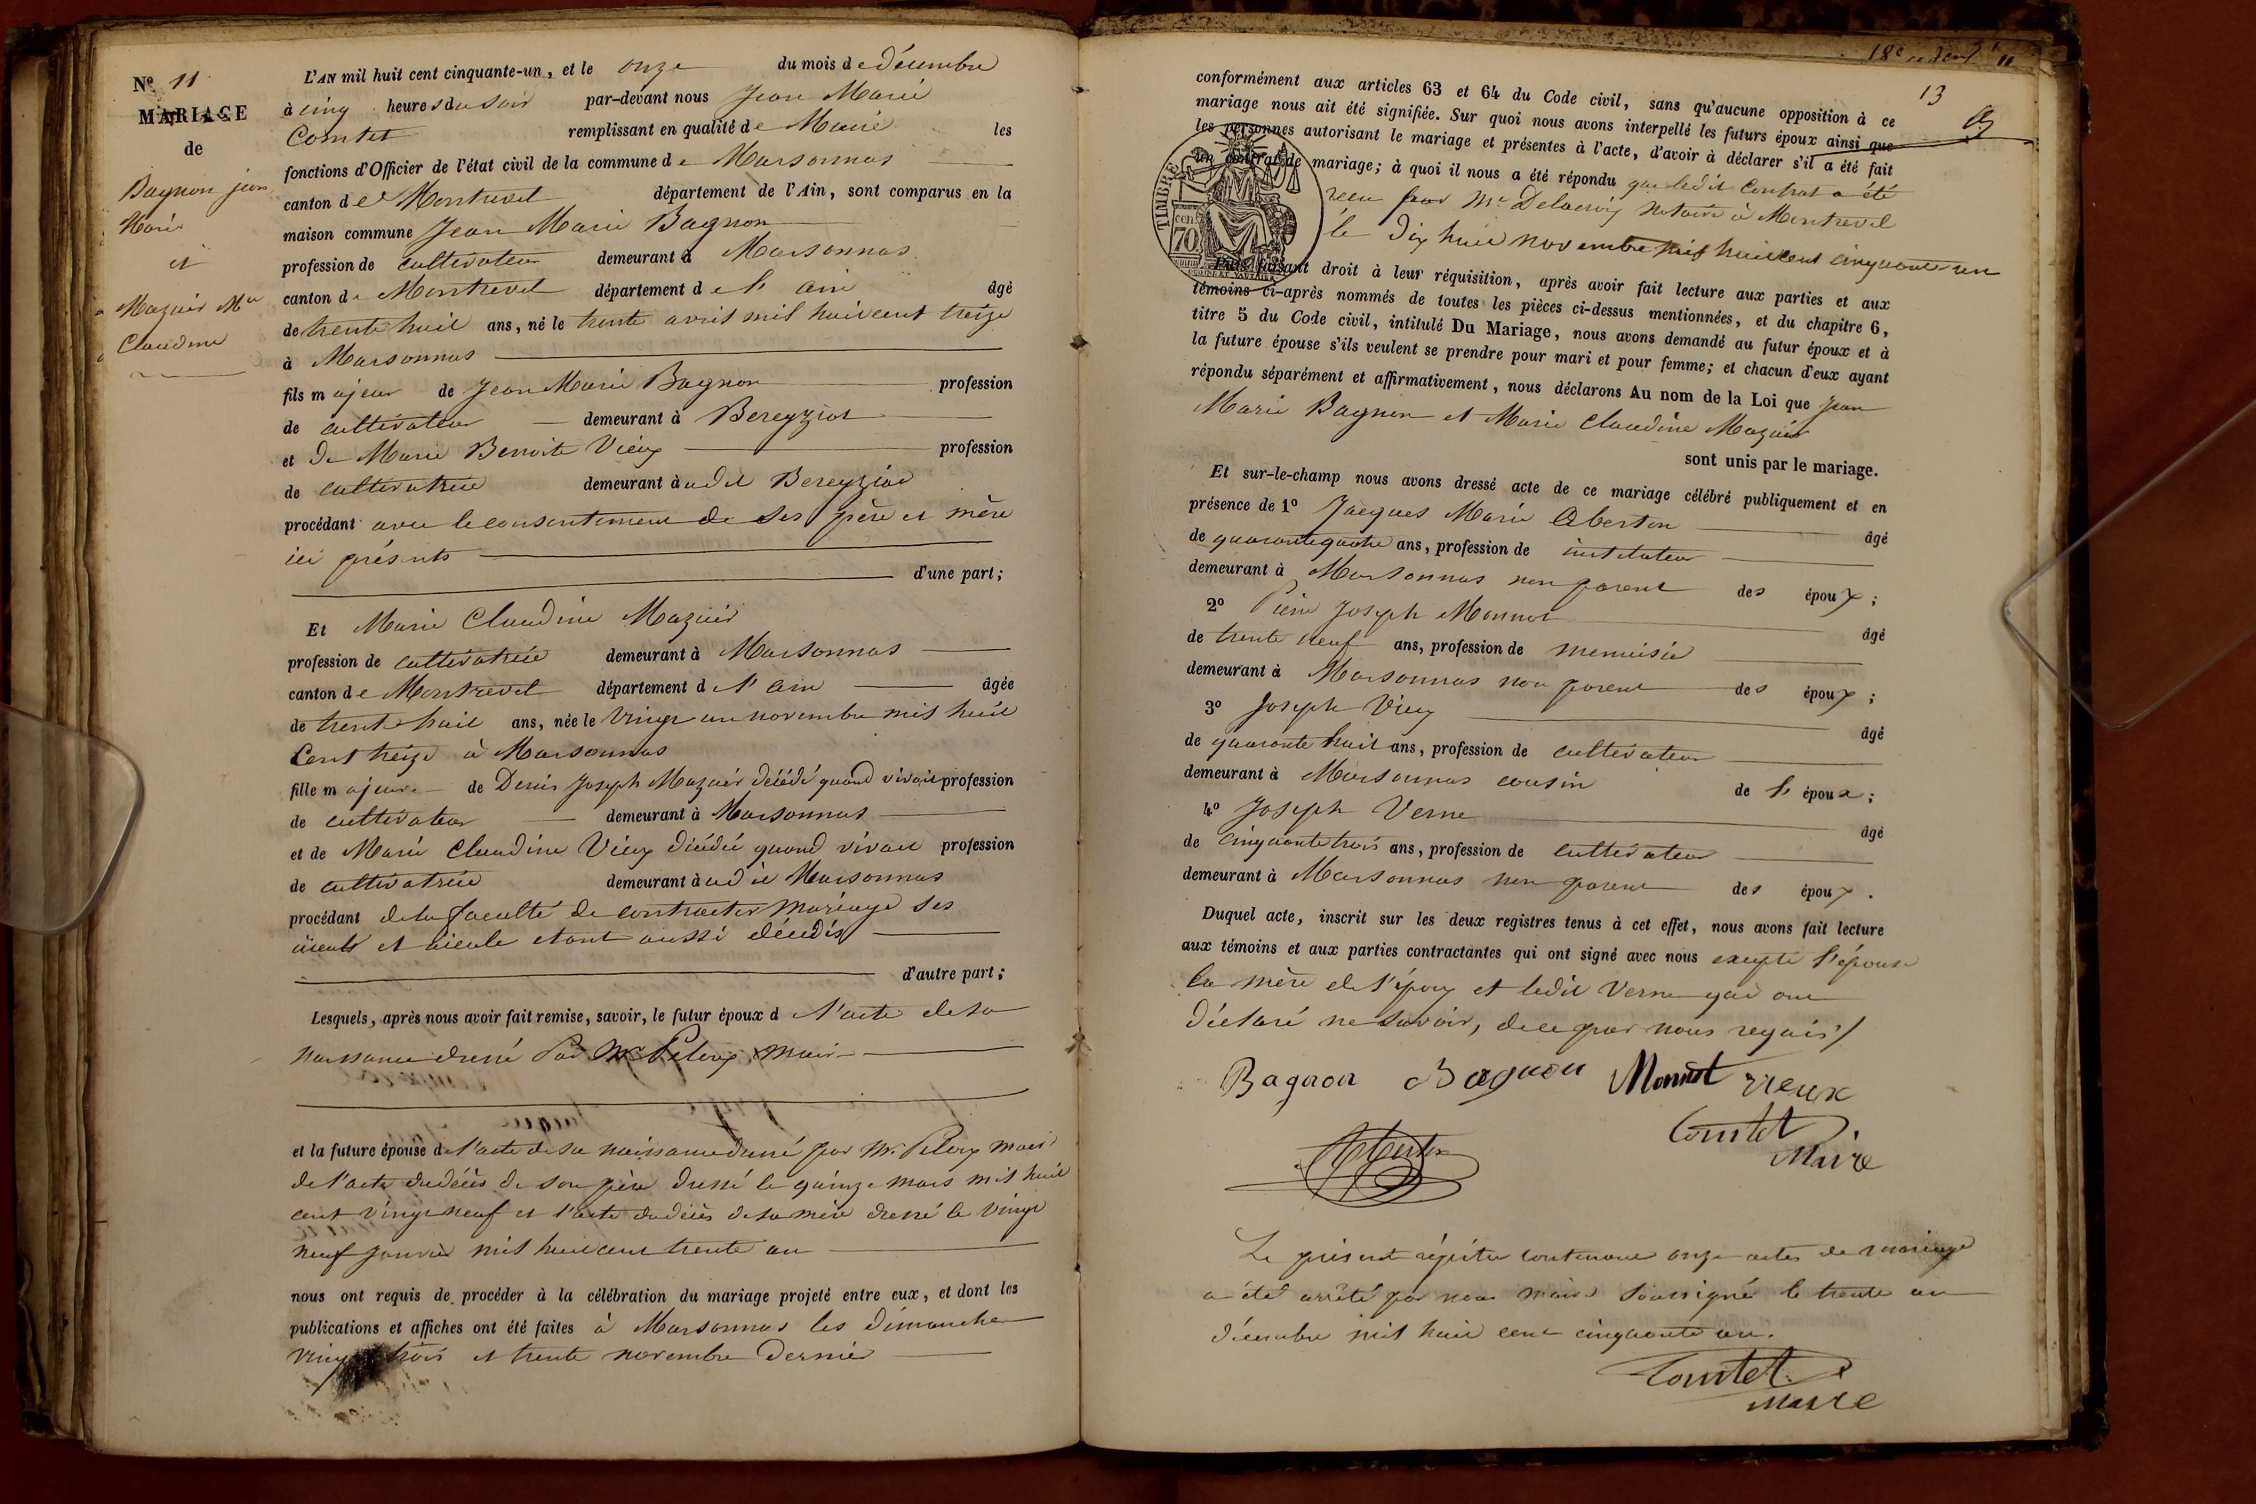 Nº 11
MARIAGE
de
Bagnon jean
Marie
et
Mazuir Mie
Claudine
L'AN mil huit cent cinquante-un, et le onze du mois de décembre
à cinq heures du soir par-devant nous Jean Marie
Comtet remplissant en qualité de Maire les
fonctions d'Officier de l'état civil de la commune de Marsonnas
canton de Montrevel département de l'Ain, sont comparus en la
maison commune Jean Marie Bagnon
profession de cultivateur demeurant à Marsonnas
canton de Montrevel département de l'ain âgé
de trente huit ans, né le trente avril mil huit cent treize
à Marsonnas
fils majeur de Jean Marie Bagnon profession
de cultivateur demeurant à Bereyziat
et de Marie Benoite Vieux profession
de cultivatrice demeurant à udit Bereyziat
procédant avec le consentement de ses père et mère
ici présents
d'une part;
Et Marie Claudine Mazuir
profession de cultivatrice demeurant à Marsonnas
canton de Montrevel département de l'ain âgée
de trente huit ans, née le vingt un novembre mil huit
Cent treize à Marsonnas
fille majeure de Denis Joseph Mazuir décédé quand vivait profession
de cultivateur demeurant à Marsonnas
et de Marie Claudine Vieux décédée quand vivait profession
de cultivatrice demeurant à udit Marsonnas
procédant de la faculté de contracter mariage ses
aïeuls et aïeule étant aussi décédés
d'autre part;
Lesquels, après nous avoir fait remise, savoir, le futur époux d l'acte de sa
naissance dressé Par Mr Peloux maire
et la future épouse de l'acte de sa naissance dressé par Mr Peloux maire
de l'acte du décès de son père dressé le quinze mars mil huit
cent vingt neuf et l'acte du décès de sa mère dressé le vingt
neuf janvier mil huit cent trente un
nous ont requis de procéder à la célébration du mariage projeté entre eux, et dont les
publications et affiches ont été faites à Marsonnas les dimanche
vingt trois et trente novembre dernier
18e
11
13
conformément aux articles 63 et 64 du Code civil, sans qu'aucune opposition à ce
mariage nous ait été signifiée. Sur quoi nous avons interpellé les futurs époux ainsi que
les personnes autorisant le mariage et présentes à l'acte, d'avoir à déclarer s'il a été fait
un contrat de mariage; à quoi il nous a été répondu que ledit Contrat a été
TIMBRE
cen
70
recu par Mr Delacroix notaire à Montrevel
le dix huit novembre mil huit cent cinquante un
Puis faisant droit à leur réquisition, après avoir fait lecture aux parties et aux
témoins ci-après nommés de toutes les pièces ci-dessus mentionnées, et du chapitre 6,
titre 5 du Code civil, intitulé Du Mariage, nous avons demandé au futur époux et à
la future épouse s'ils veulent se prendre pour mari et pour femme; et chacun d'eux ayant
répondu séparément et affirmativement, nous déclarons Au nom de la Loi que Jean
Marie Bagnon et Marie Claudine Mazuir
sont unis par le mariage.
Et sur-le-champ nous avons dressé acte de ce mariage célébré publiquement et en
présence de 1º Jacques Marie Oberton âgé
de quarante quatre ans, profession de instituteur
demeurant à Marsonnas non parent des époux;
2º Pierre Joseph Monnot âgé
de trente neuf ans, profession de menuisier
demeurant à Marsonnas non parent des époux;
3º Joseph Vieux âgé
de quarante huit ans, profession de cultivateur
demeurant à Marsonnas cousin de l'époux;
4º Joseph Verne âgé
de cinquante trois ans, profession de cultivateur
demeurant à Marsonnas non parent des époux.
Duquel acte, inscrit sur les deux registres tenus à cet effet, nous avons fait lecture
aux témoins et aux parties contractantes qui ont signé avec nous excepté l'épouse
la mère de l'époux et ledit Verne qui ont
Déclaré ne savoir, de ce par nous requis/
Bagnon Bagnon Monnot vieux
Comtet
Maire
Le présent régitre contenant onze actes de mariage
a été arrêté par nous maire soussigné le trente un
décembre mil huit cent cinquante un.
Comtet
Maire